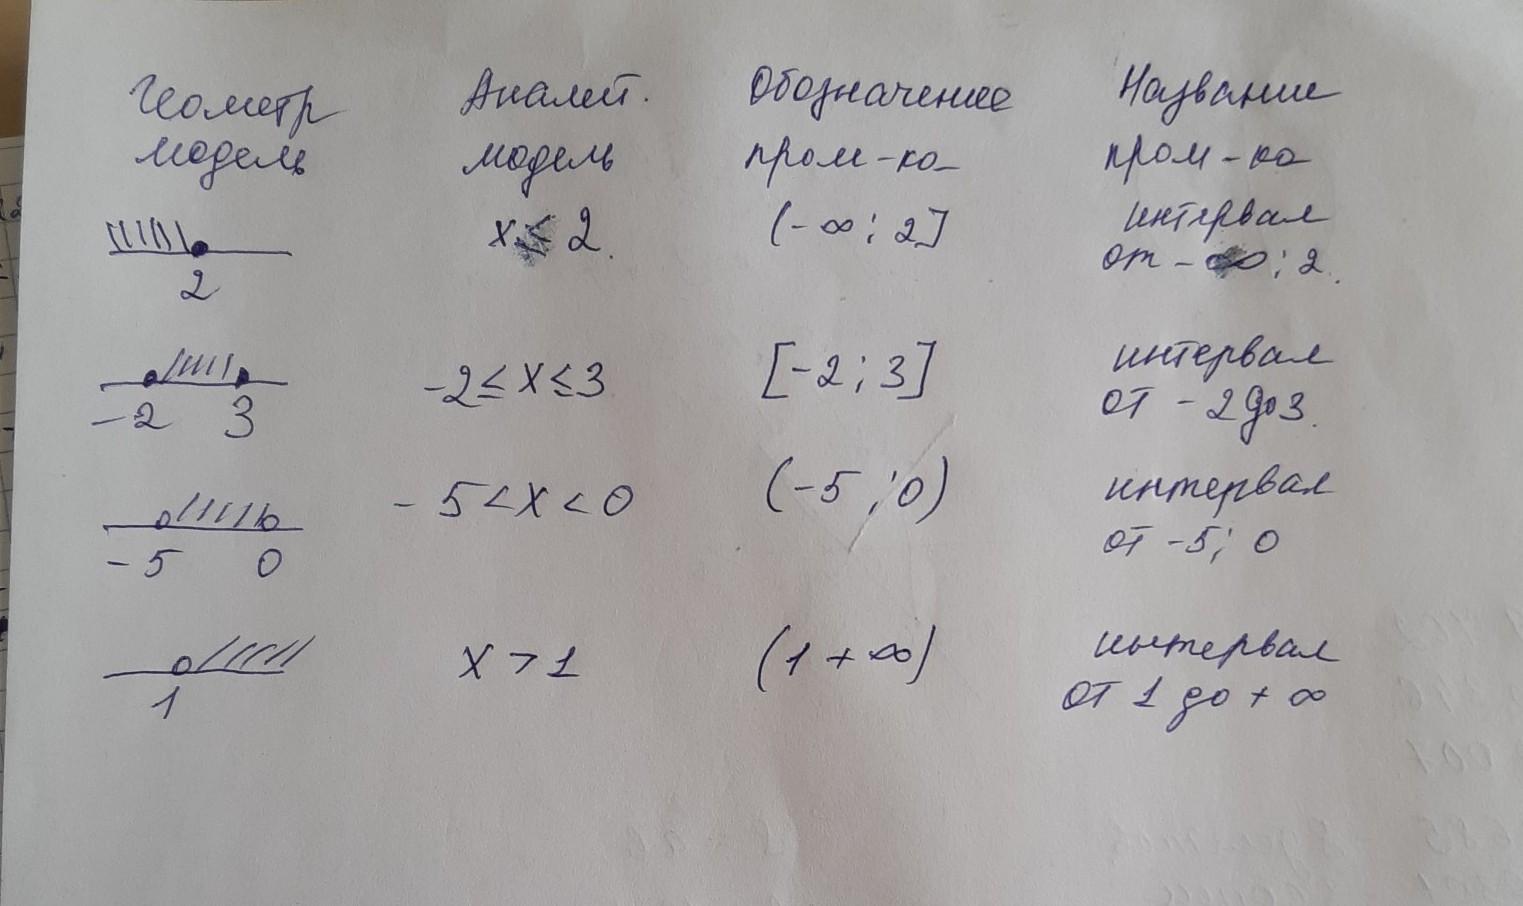 Геометр Аналит. Обозначение Название
модель модель пром-ка пром-ка
x ≤ 2. (-∞; 2] интервал
2 от -∞; 2.
-2 ≤ x ≤ 3 [-2; 3] интервал
-2 3 от -2 до 3.
-5 < x < 0 (-5; 0) интервал
-5 0 от -5; 0
x > 1 (1 +∞) интервал
1 от 1 до +∞